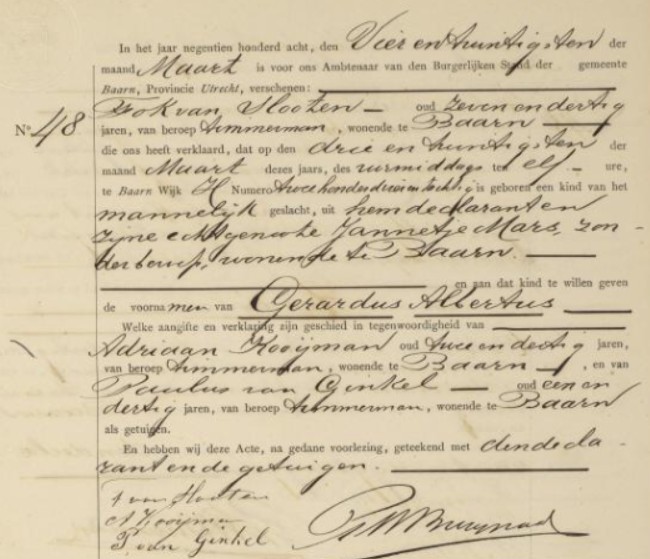 In het jaar negentien honderd acht, den Vier en twintigsten der
maand Maart is voor ons Ambtenaar van den Burgerlijken Stand der gemeente
Baarn, Provincie Utrecht, verschenen:
van Slooten oud zeven en dertig
N° 48
jaren, van beroep timmerman, wonende te Baarn
die ons heeft verklaard, dat op den drie en twintigsten der
maand Maart dezes jaars, des vormiddags ten elf ure,
te Baarn Wijk H Numero twee honderd drie en tachtig is geboren een kind van het
mannelijk geslacht, uit hem declarant en
zijne echtgenoote Jannetje Mars, zon-
der beroep, wonende te Baarn.
en aan dat kind te willen geven
de voornamen van Gerardus Albertus
Welke aangifte en verklaring zijn geschied in tegenwoordigheid van
Adriaan Kooijman oud twee en dertig jaren,
van beroep timmerman, wonende te Baarn, en van
Paulus van Ginkel oud een en
dertig jaren, van beroep timmerman, wonende te Baarn
als getuigen.
En hebben wij deze Acte, na gedane voorlezing, geteekend met den decla-
rant en de getuigen.
van Slooten
A Kooijman
P. van Ginkel